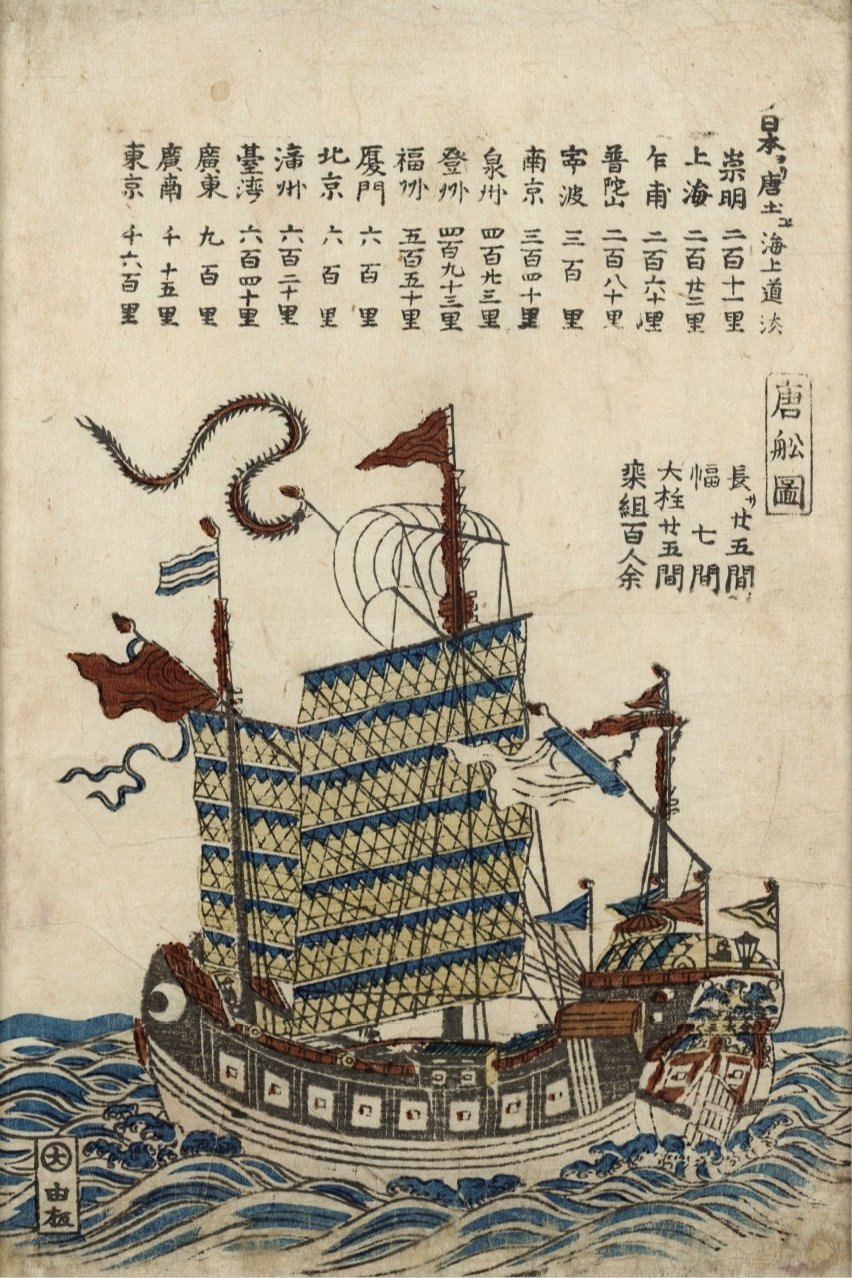 日本ヨリ唐土エ海上道法
崇明 二百十一里
上海 二百廿二里
乍甫 二百六十里
普陀山 二百八十里
寧波 三百里
南京 三百四十里
泉州 四百廿三里
登州 四百九十三里
福州 五百五十里
厦門 六百里
北京 六百里
漳州 六百二十里
臺湾 六百四十里
廣東 九百里
廣南 千十五里
東京 千六百里
唐舩圖
長サ廿五間
幅七間
大栓廿五間
乗組百人余
大
由板